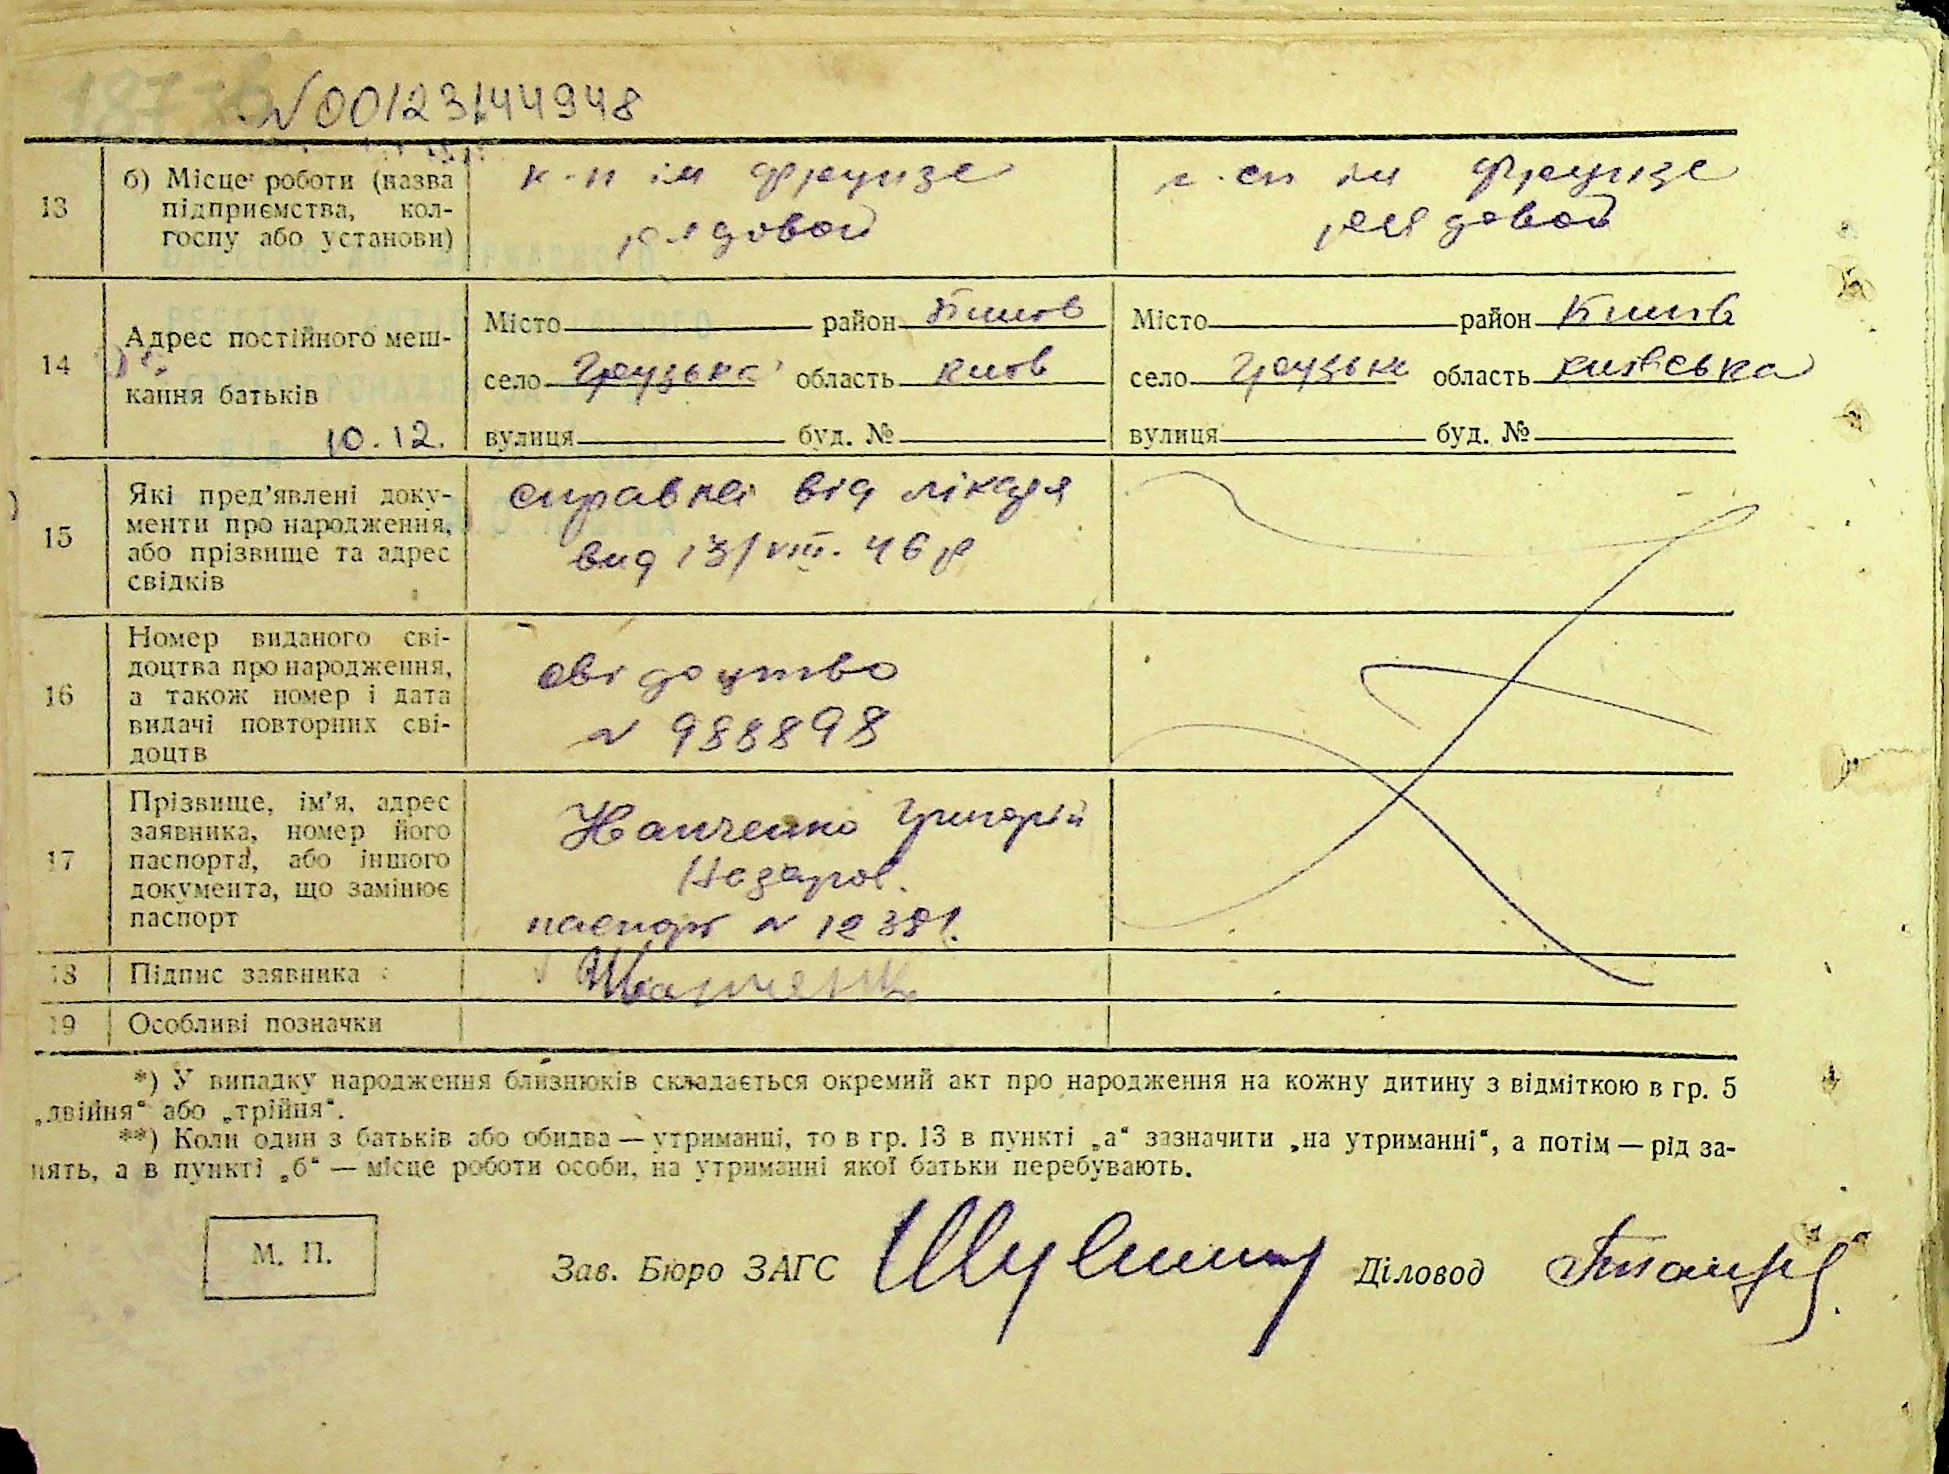 №00123144948
13
б) Місце роботи (назва
підприємства, кол-
госпу або установи)
к-п ім Фрунзе
рядовой
ім Фрунзе
рядовой
14
Адрес постійного меш-
кання батьків
10.12.
Місто район
село область Київ
вулиця буд. №
Місто район
село область Київська
вулиця буд. №
15
Які пред’явлені доку-
менти про народження,
або прізвище та адрес
свідків
справка від лікаря
вид 13/VIII. 46 р
16
Номер виданого сві-
доцтва про народження,
а також номер і дата
видачі повторних сві-
доцтв
свідоцтво
№ 988898
17
Прізвище, ім’я, адрес
заявника, номер його
паспорта, або іншого
документа, що замінює
паспорт
Григорій
Назаров.
паспорт №
18
Підпис заявника
19
Особливі позначки
*) У випадку народження близнюків складається окремий акт про народження на кожну дитину з відміткою в гр. 5
„двійня“ або „трійня“.
**) Коли один з батьків або обидва — утриманці, то в гр. 13 в пункті „а“ зазначити „на утриманні“, а потім — рід за-
нять, а в пункті „б“ — місце роботи особи, на утриманні якої батьки перебувають.
М. П.
Зав. Бюро ЗАГС
Діловод